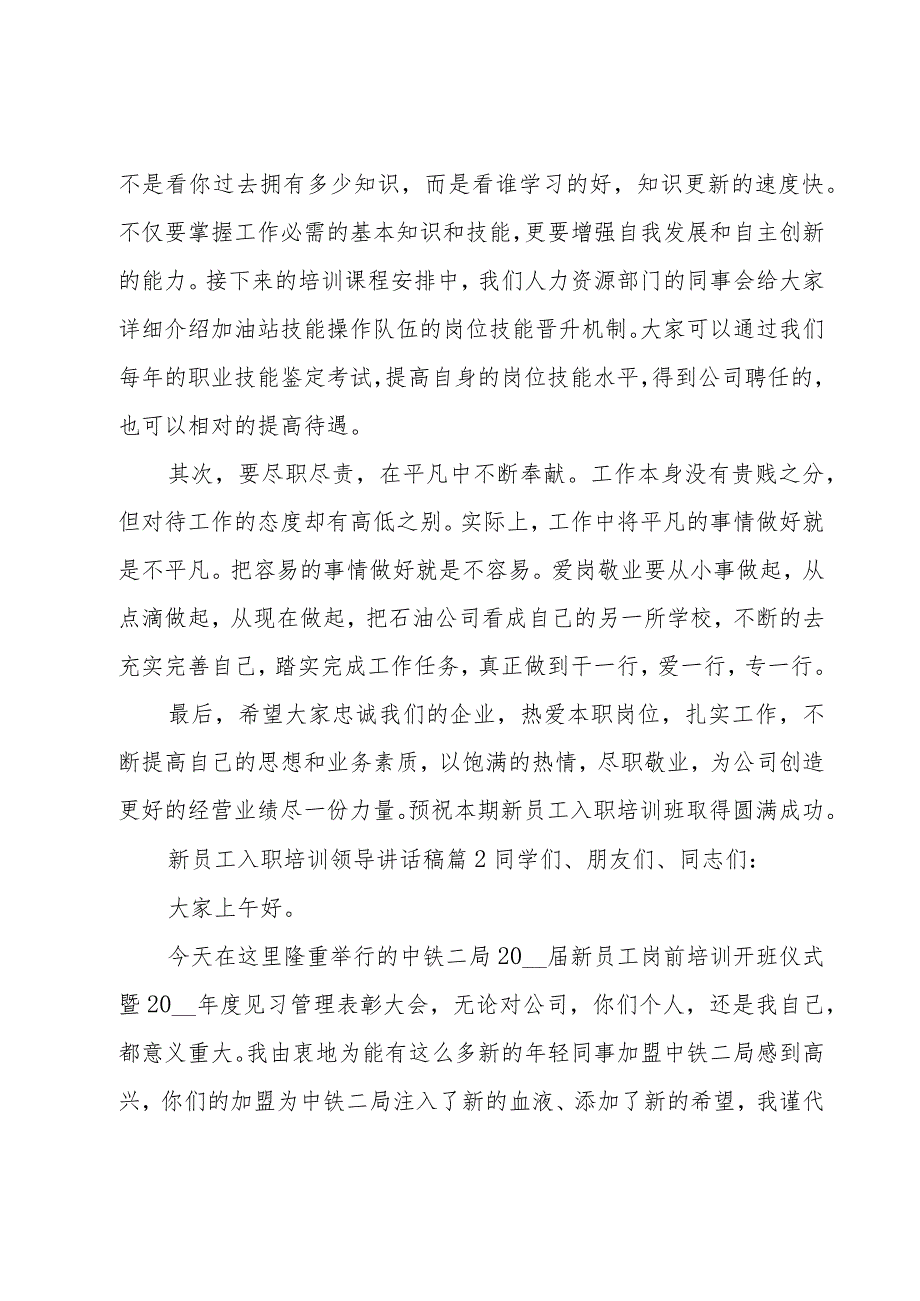 不是看你过去拥有多少知识，而是看谁学习的好，知识更新的速度快。
不仅要掌握工作必需的基本知识和技能，更要增强自我发展和自主创新
的能力。接下来的培训课程安排中，我们人力资源部门的同事会给大家
详细介绍加油站技能操作队伍的岗位技能晋升机制。大家可以通过我们
每年的职业技能鉴定考试，提高自身的岗位技能水平，得到公司聘任的，
也可以相对的提高待遇。
其次，要尽职尽责，在平凡中不断奉献。工作本身没有贵贱之分，
但对待工作的态度却有高低之别。实际上，工作中将平凡的事情做好就
是不平凡。把容易的事情做好就是不容易。爱岗敬业要从小事做起，从
点滴做起，从现在做起，把石油公司看成自己的另一所学校，不断的去
充实完善自己，踏实完成工作任务，真正做到干一行，爱一行，专一行。
最后，希望大家忠诚我们的企业，热爱本职岗位，扎实工作，不
断提高自己的思想和业务素质，以饱满的热情，尽职敬业，为公司创造
更好的经营业绩尽一份力量。预祝本期新员工入职培训班取得圆满成功。
新员工入职培训领导讲话稿篇 2 同学们、朋友们、同志们：
大家上午好。
今天在这里隆重举行的中铁二局 20__届新员工岗前培训开班仪式
暨 20__年度见习管理表彰大会，无论对公司，你们个人，还是我自己，
都意义重大。我由衷地为能有这么多新的年轻同事加盟中铁二局感到高
兴，你们的加盟为中铁二局注入了新的血液、添加了新的希望，我谨代